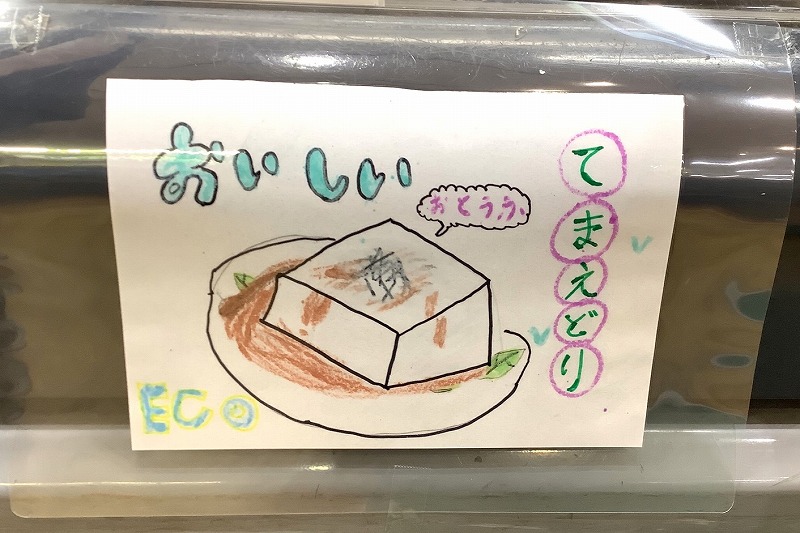 おいしい
おとうふ
てまえどり
ECO